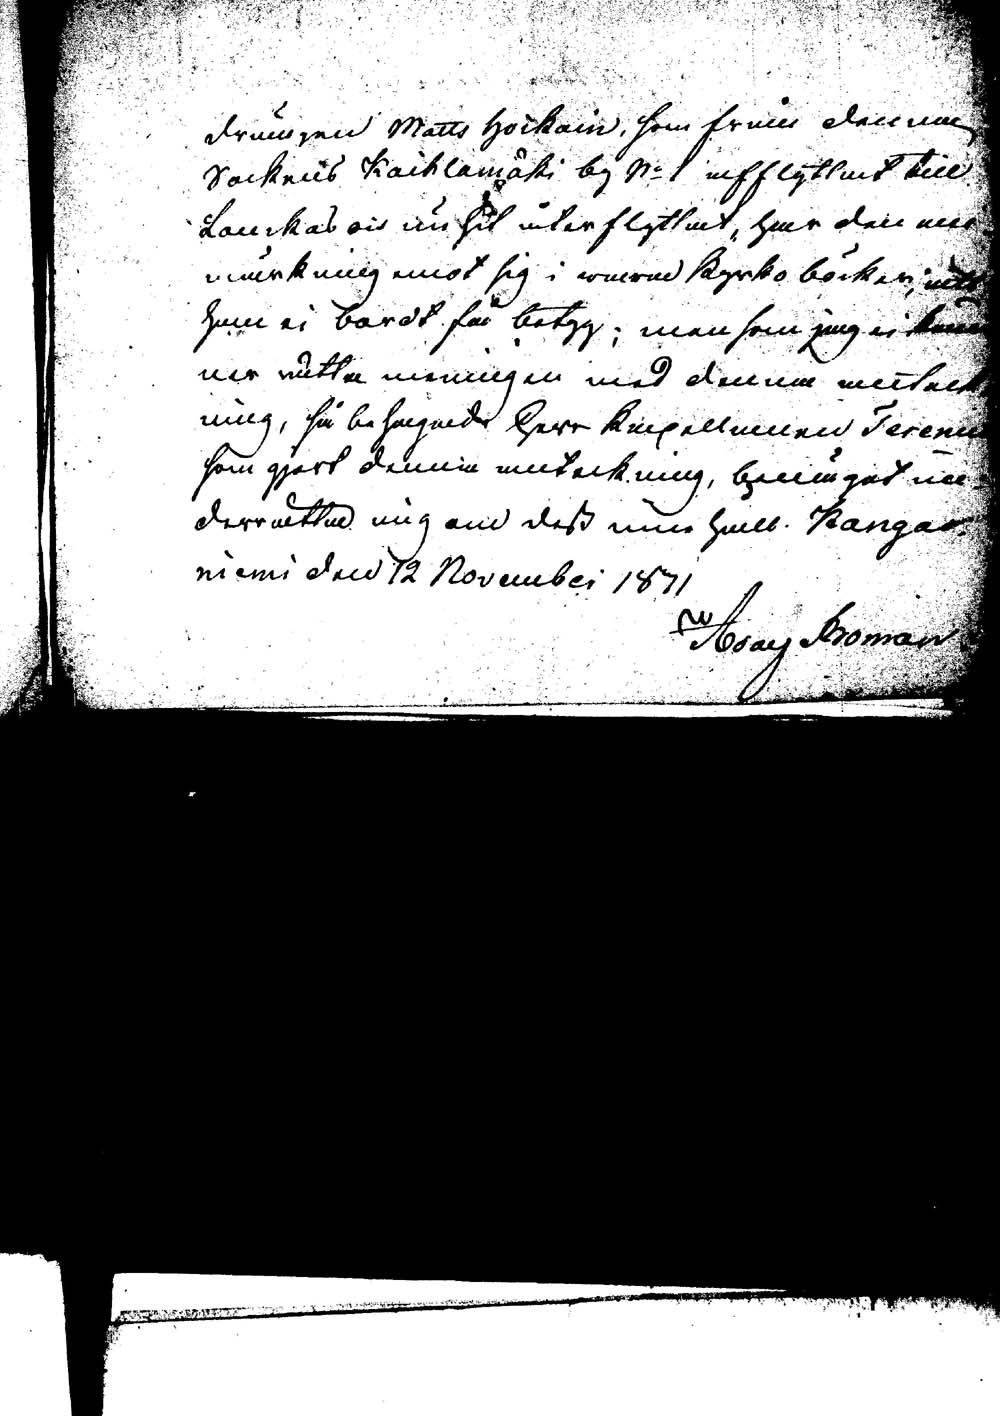 Drängen Matts Hokkain, som från denna
Sockens Kaihlamäki by No 1 afflyttat till
Laukas och nu hit återflyttat, har den an
märkning emot sig i warand Kyrko böcker; att
han ei bordt få betyg; men som jag ei kän
ner rätta meningen med denna anteck
ning, så behagade Herr Kapellanen Fereni
som gjort denna anteckning, benäget un
derrätta mig om dess innehåll. Kangas
niemi den 12 November 1871
Broman